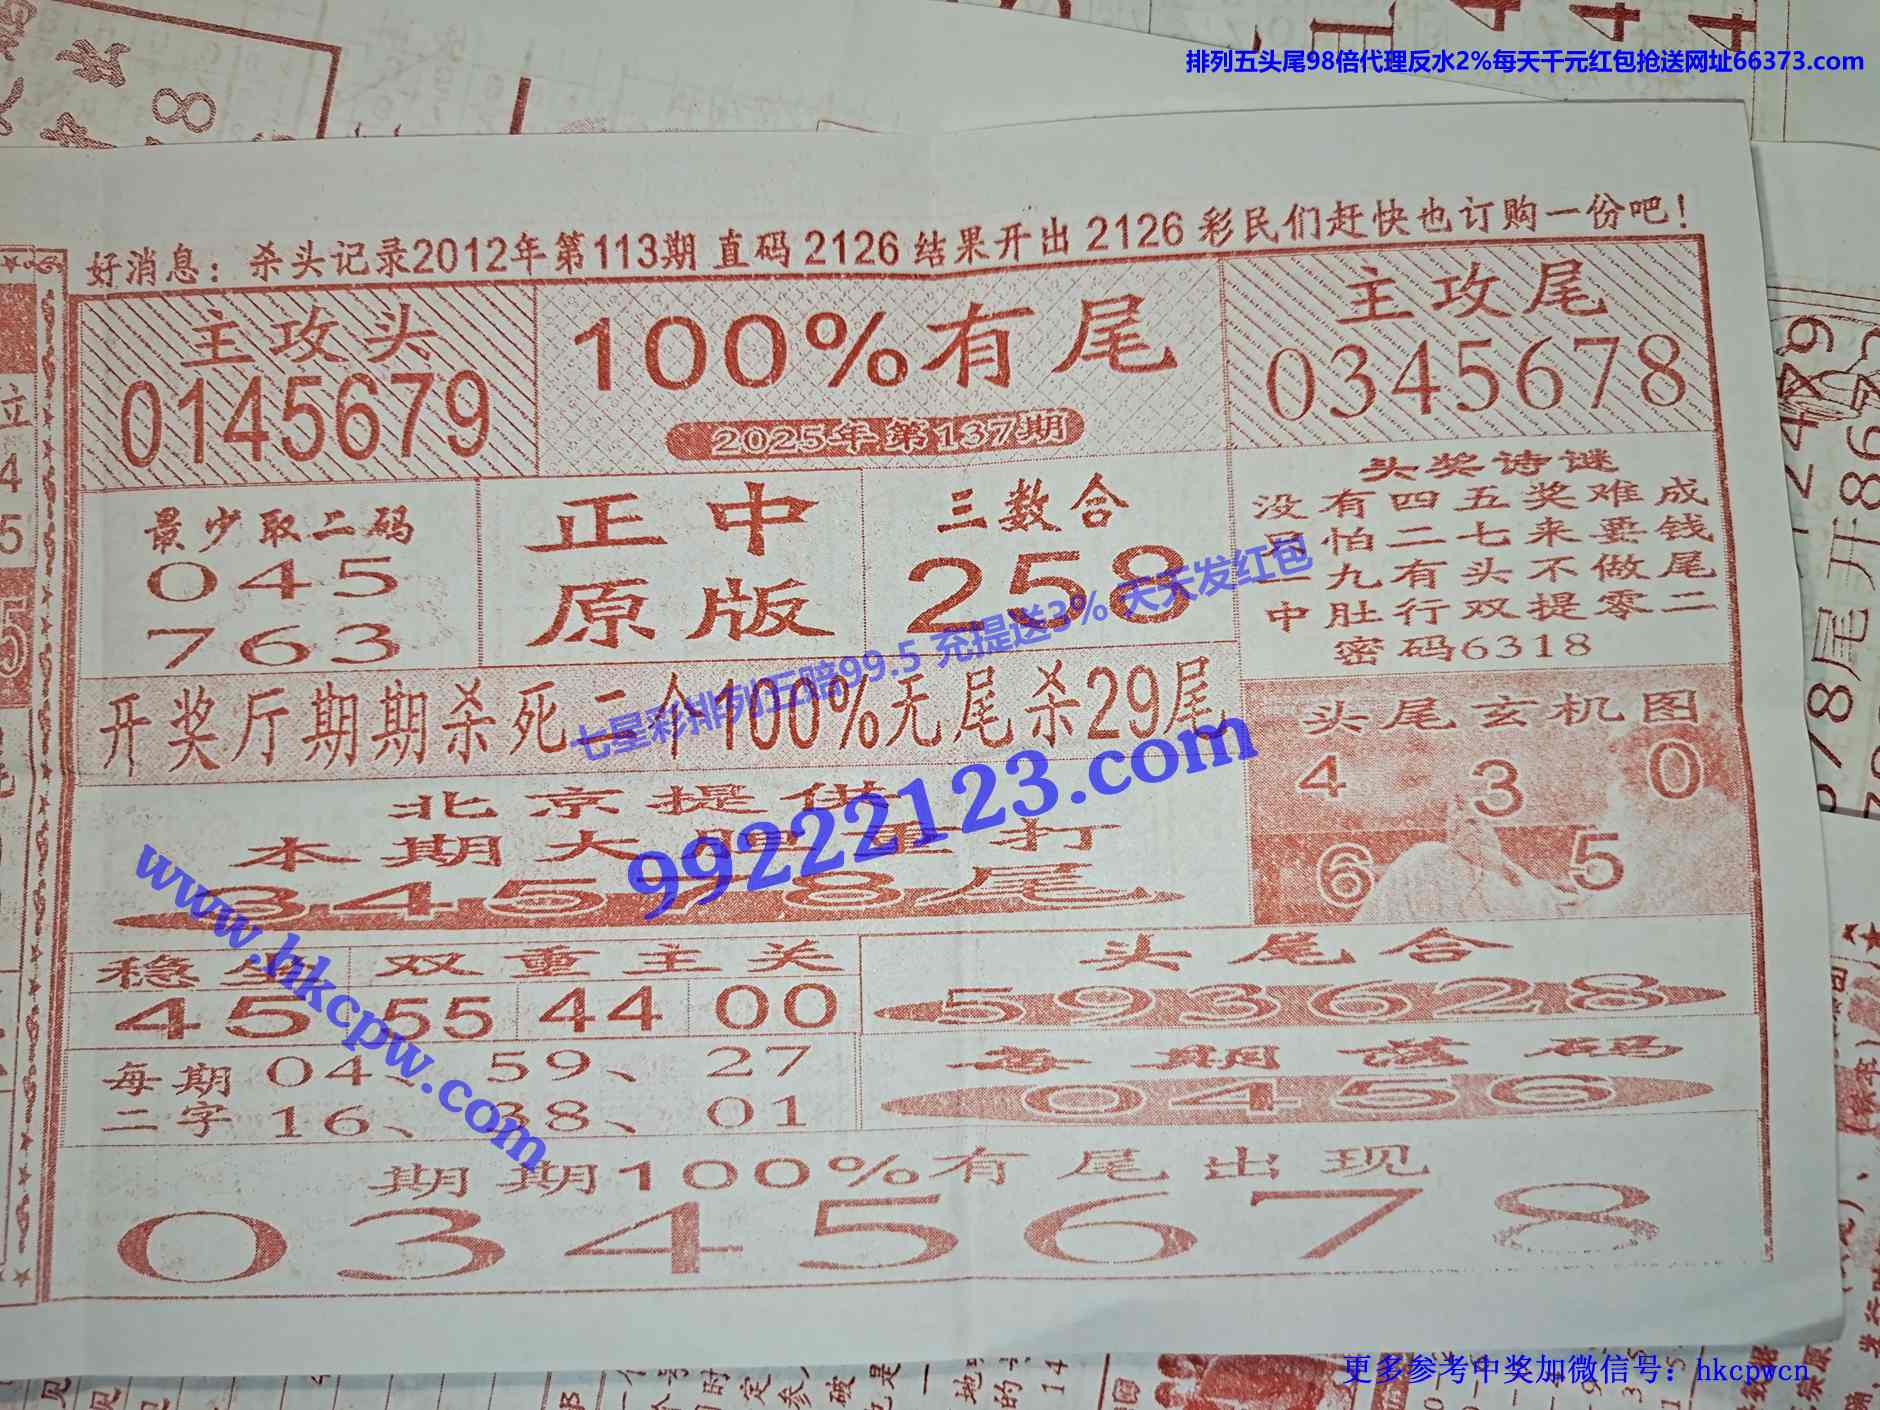 排列五头尾98倍代理反水2%每天千元红包抢送网址66373.com
好消息：杀头记录2012年第113期 直码 2126 结果开出 2126 彩民们赶快也订购一份吧！
主攻头
0145679
100%有尾
2025年第137期
主攻尾
0345678
最少取二码
045
763
正中
原版
三数合
258
头奖诗谜
没有四五奖难成
只怕二七来要钱
一九有头不做尾
中肚行双提零二
密码6318
七星彩排列五赔99.5 充提送3% 天天发红包
开奖厅期期杀死二个100%无尾杀29尾
头尾玄机图
4 3 0
6 5
北京提供
本期大胆重打
34578尾
99222123.com
www.hkcpw.com
稳坐
45
双重主关
55 44 00
头尾合
593628
每期
二字
04、59、27
16、38、01
每期落码
0456
期期100%有尾出现
0345678
更多参考中奖加微信号：hkcpwcn